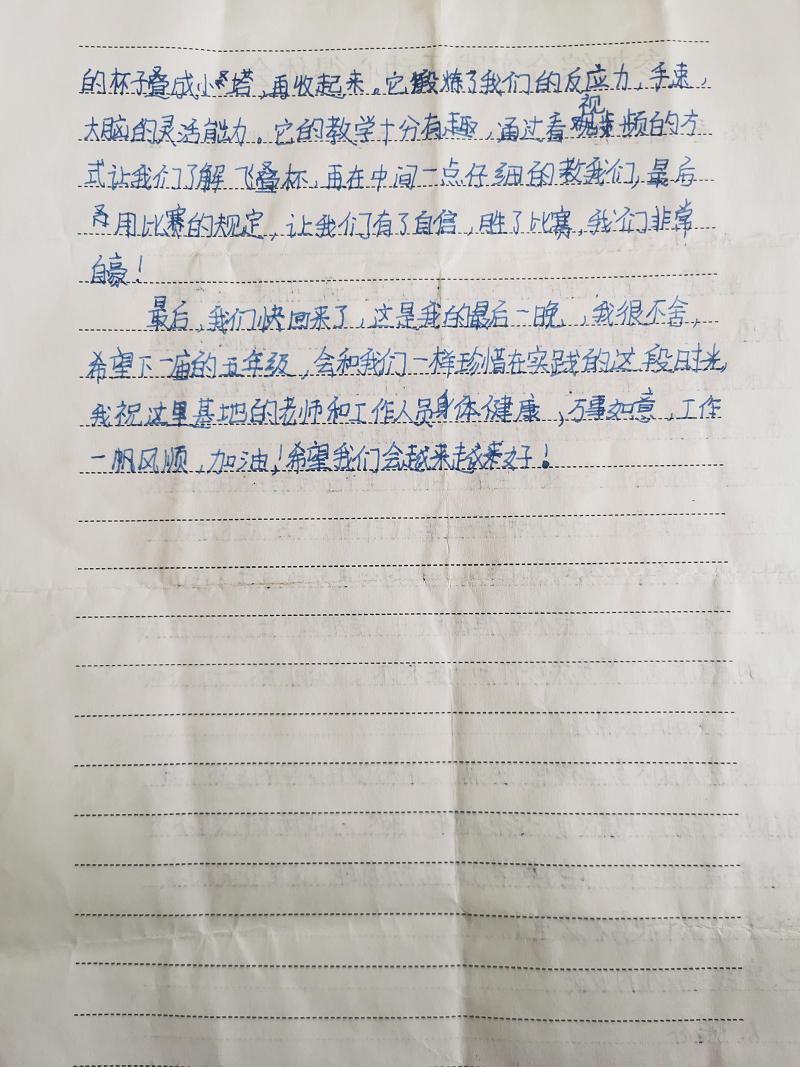 的杯子叠成小塔，再收起来。它锻炼了我们的反应力，手速，
大脑的灵活能力。它的教学十分有趣，通过看视频的方
式让我们了解飞叠杯，再在中间一点仔细的教我们，最后
用比赛的规定，让我们有了自信，胜了比赛，我们非常
自豪！
最后，我们快回来了，这是我在的最后一晚，我很不舍，
希望下一届的五年级，会和我们一样珍惜在实践的这段时光，
我祝这里基地的老师和工作人员身体健康，万事如意，工作
一帆风顺，加油！希望我们会越来越好！